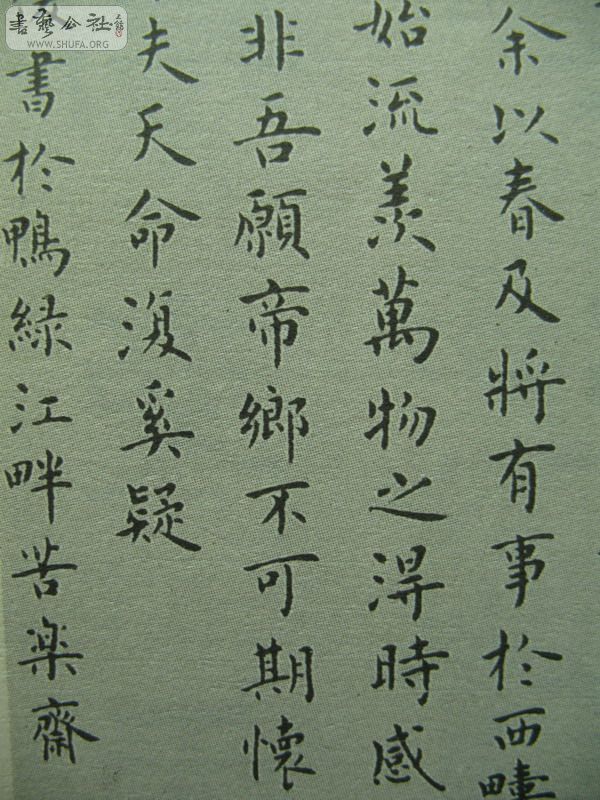 余以春及將有事於西疇
始流羨萬物之得時感
非吾願帝鄉不可期懷
夫天命復奚疑
書於鴨緑江畔苦楽齋
書藝公社
WWW.SHUFA.ORG